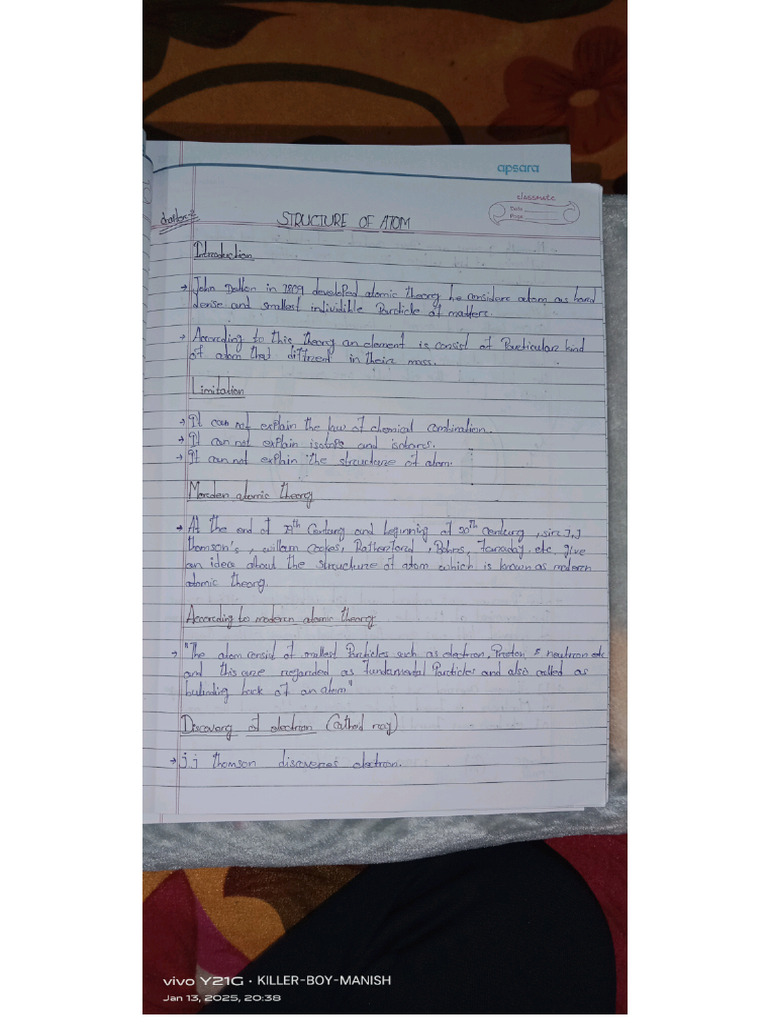 apsara
classmate
Date
Page
chapter-2
STRUCTURE OF ATOM
Introduction
→ John Dalton in 1809 developed atomic theory he considers atom as hard
dense and smallest indivdible Particle of matters.
→ According to this theory an element is consist of Particular kind
of atom that diffrent in their mass.
Limitation
→ It can not explain the law of chemical combination.
→ It can not explain isotops and isobares.
→ It can not explain the structure of atom.
Morden atomic theory
→ At the end of 19th Century and beginning of 20th century, sir J.J
thomson's, william Crookes, Rutherford, Bohrs, faraday, etc give
an idea about the structure of atom which is known as modern
atomic theory.
According to modern atomic theory
→ "The atom consist of smallest Particles such as electron, Proton & neutron etc
and this are regarded as fundamental Particles and also called as
building back of an atom"
Discovery of electron (Cathod ray)
→ J.J thomson discoveres electron.
vivo Y21G · KILLER-BOY-MANISH
Jan 13, 2025, 20:38